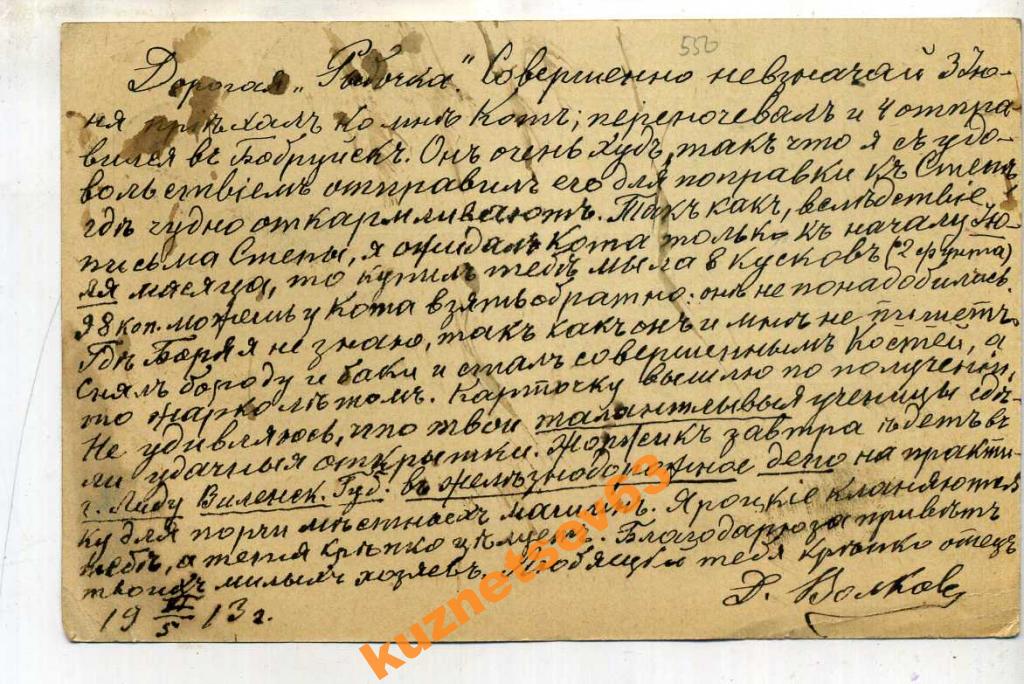 550
Дорогая „Рыбочка“. Совершенно невзначай 3 Iю-
ня прiѣхалъ ко мнѣ Котъ; переночевалъ и 4 отпра
вился въ Бобруйскъ. Онъ очень худъ, такъ что я съ удо-
вольствiемъ отправилъ его для поправки къ Степѣ,
гдѣ чудно откармливаютъ. Такъ какъ, вслѣдствiе
письма Степы, я ожидалъ Кота только къ началу Iю-
ля мѣсяца, то купилъ тебѣ мыла 8 кусковъ (2 фунта)
98 коп. можешь у Кота взять обратно: онѣ не понадобились.
Гдѣ Боря я не знаю, такъ какъ онъ и мнѣ не пишетъ.
Снялъ бороду и баки и сталъ совершеннымъ Костей, а
то жарко лѣтомъ. Карточку вышлю по полученiи.
Не удивляюсь, что твои талантливыя ученицы сдѣ-
ли удачныя открытки. Жоржикъ завтра ѣдетъ въ
г. Лиду Виленск. Губ. въ желѣзнодорожное депо на практи-
ку для порчи мѣстныхъ машинъ. Яроцкiе кланяются
тебѣ, а тетя крѣпко цѣлуетъ. Благодарю за привѣтъ
твоихъ милыхъ хозяевъ. Любящiй тебя крѣпко отецъ
Д. Волковъ
19 VI/5 13 г.
kuznetsov63